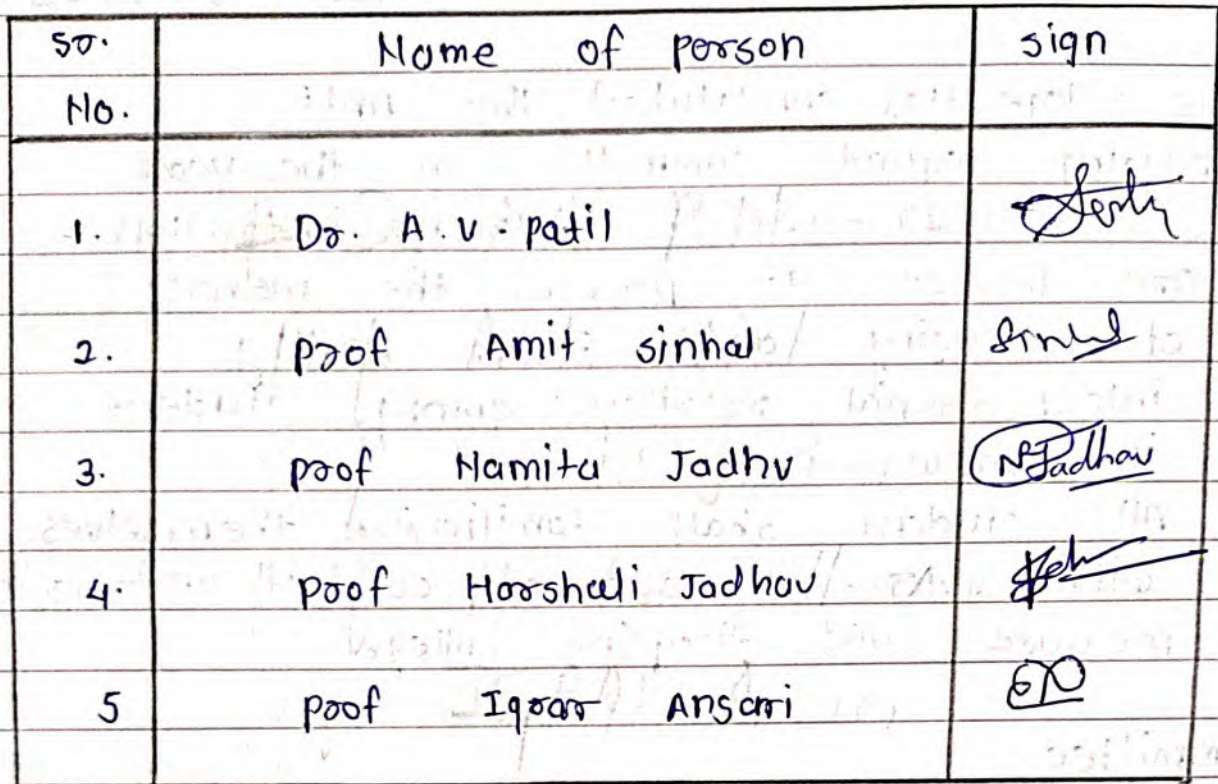 Sr. Name of person sign
No.
1. Dr. A.V. Patil
2. Prof Amit sinhal Sinhal
3. Prof Namita Jadhv NJadhav
4. Prof Harshali Jadhav
5 Prof Iqrar Ansari